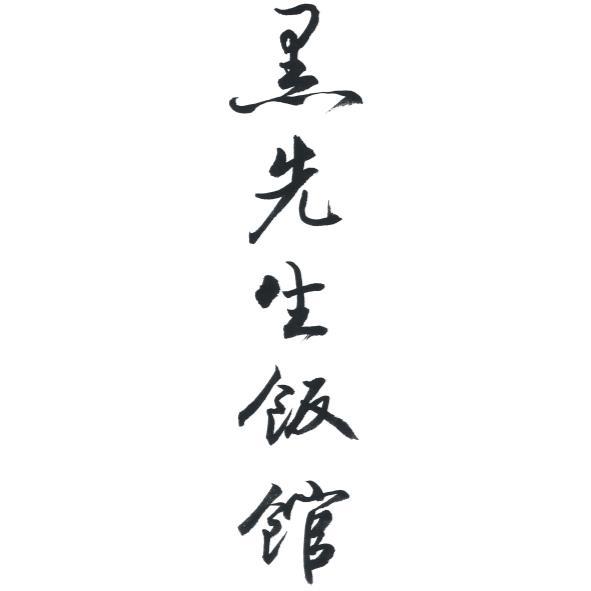 黑先生飯館